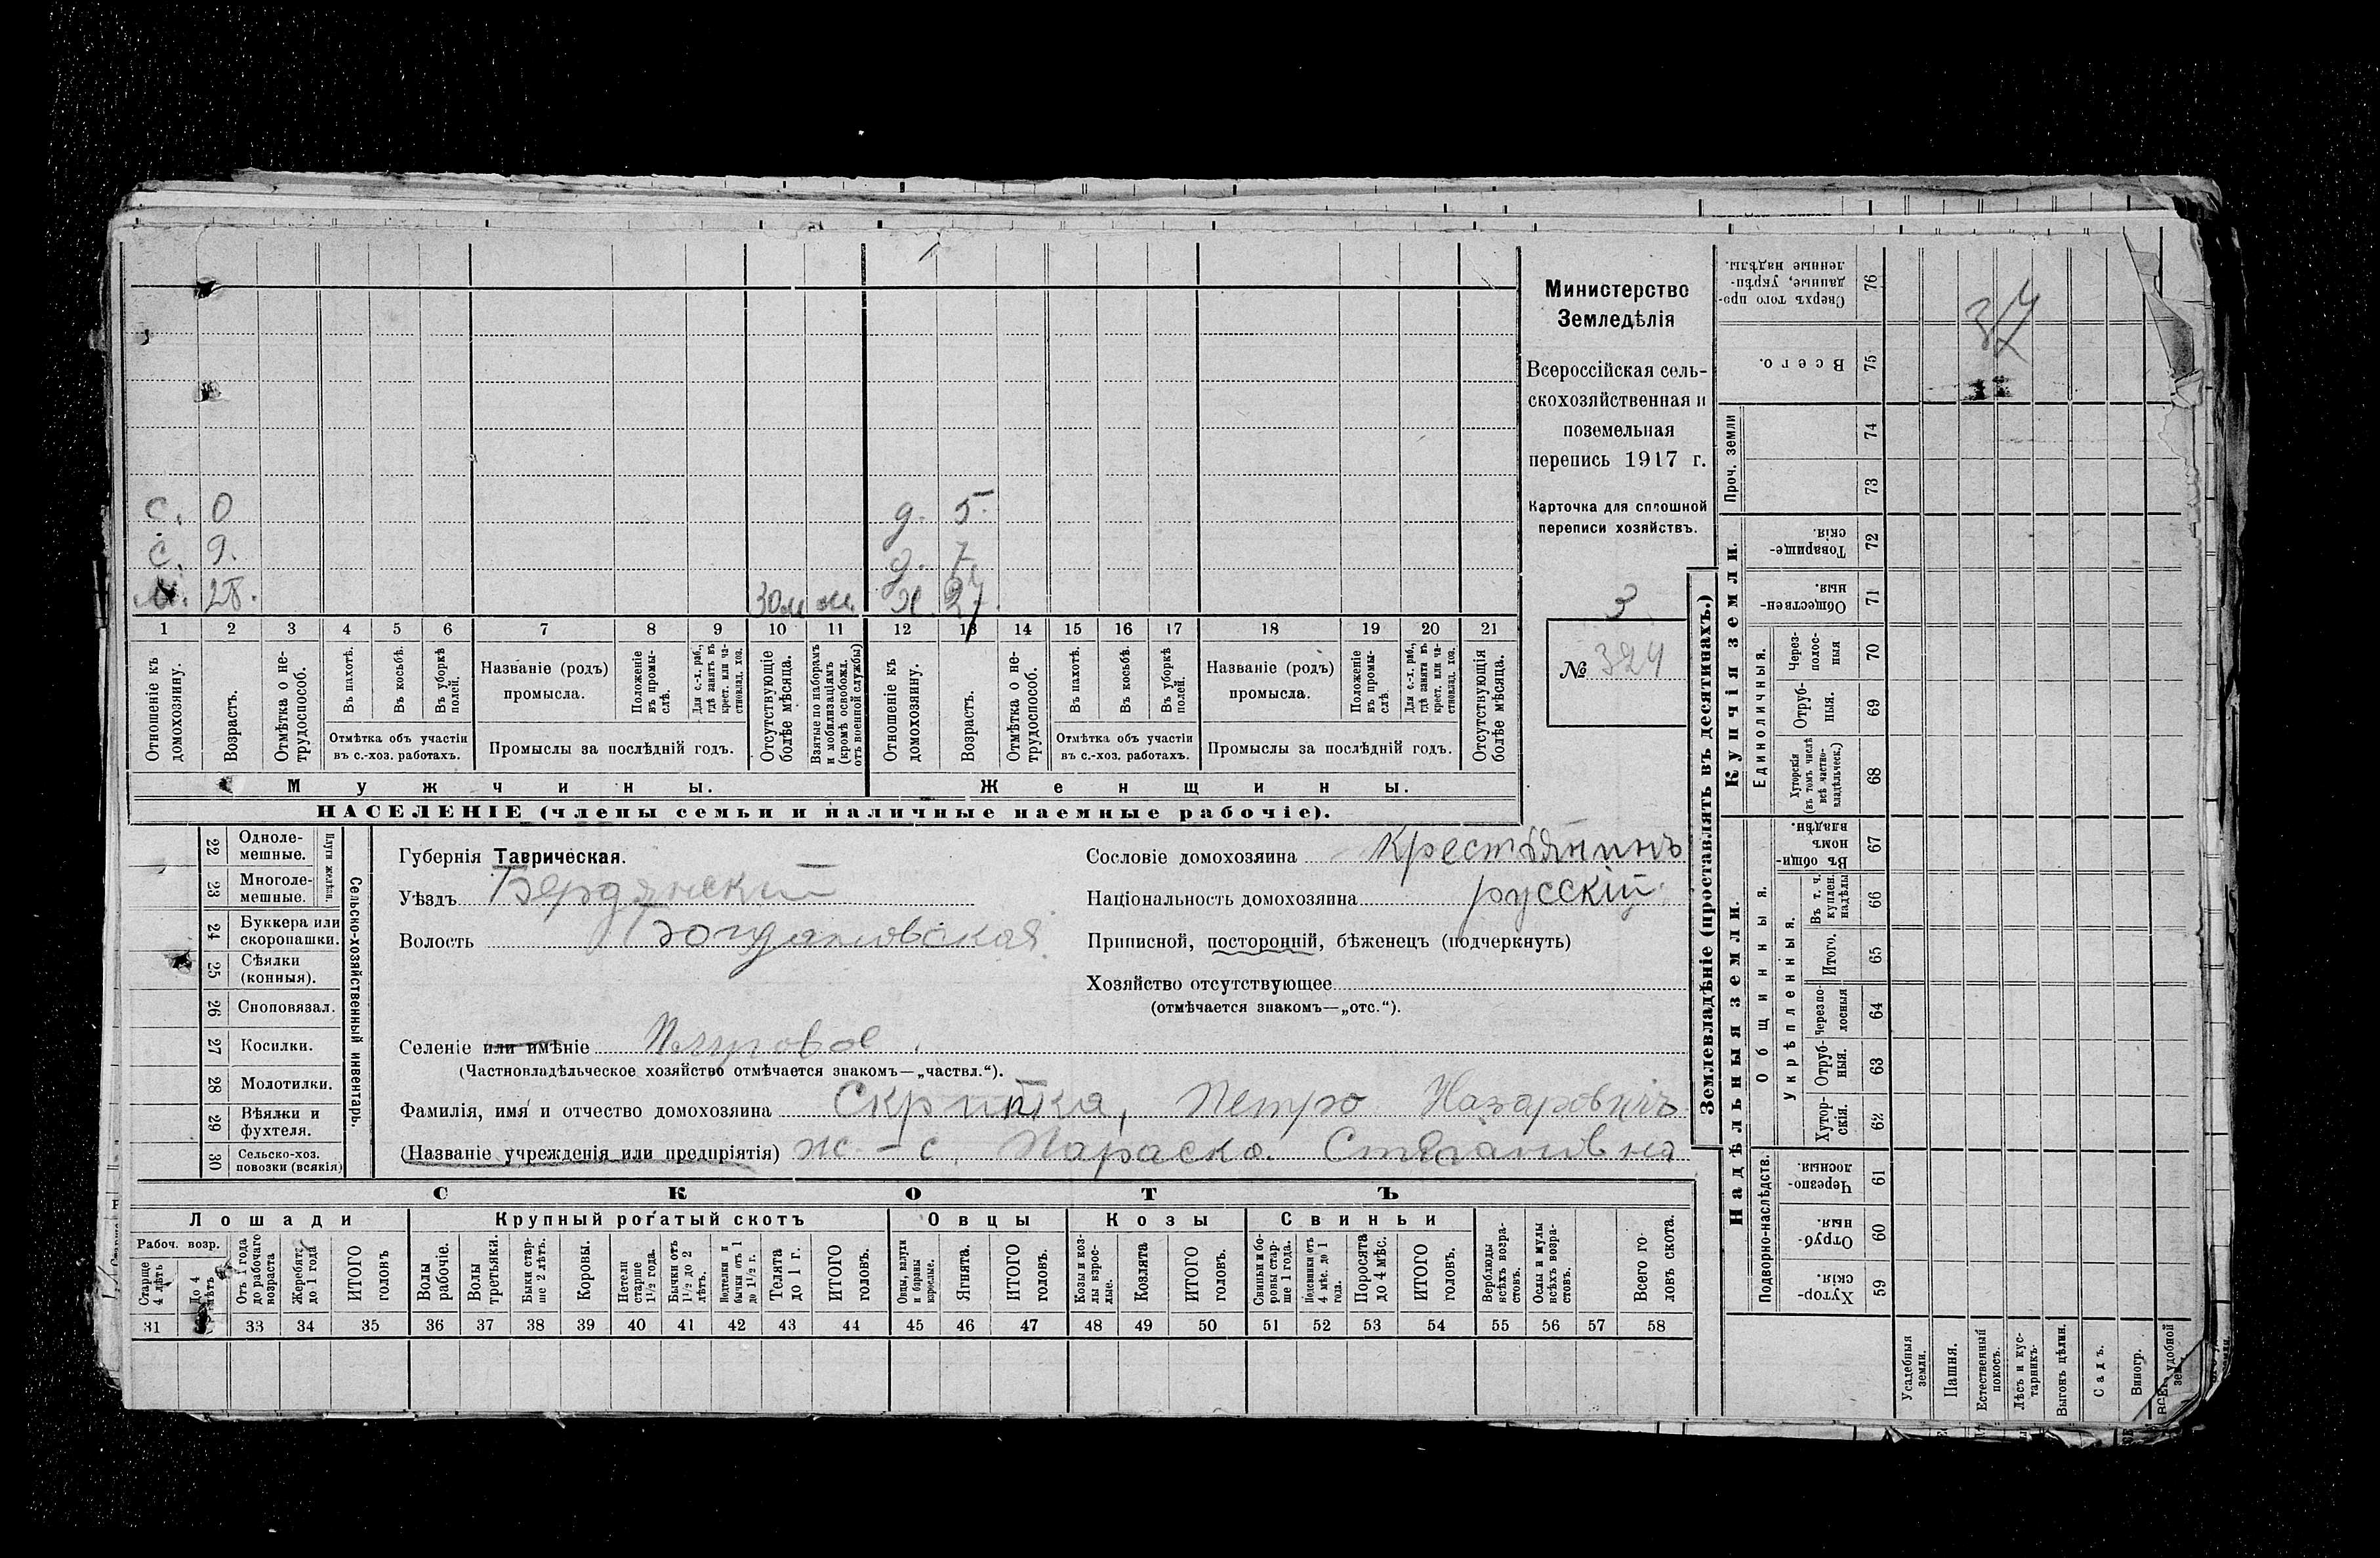 Министерство
Земледѣлія
Всероссійская сель-
скохозяйственная и
поземельная
перепись 1917 г.
Карточка для сплошной
переписи хозяйствъ.
3
№ 324
с. 0 д. 5.
с. 9. д. 7.
м. 28. 30 м м. ж. 27.
1 2 3 4 5 6 7 8 9 10 11 12 13 14 15 16 17 18 19 20 21
Отношеніе къ домохозяину.
Возрастъ.
Отмѣтка о не-трудоспособ.
Въ пахотѣ.
Въ косьбѣ.
Въ уборкѣ полей.
Отмѣтка объ участіи
въ с.-хоз. работахъ.
Названіе (родъ)
промысла.
Положеніе въ промы-слѣ.
Для с.-х. раб., гдѣ занятъ въ крест. или ча-стновлад. хоз.
Промыслы за послѣдній годъ.
Отсутствующіе болѣе мѣсяца.
Взятые по наборамъ и мобилизаціямъ (кромѣ освобожд. отъ военной службы)
Отношеніе къ домохозяину.
Возрастъ.
Отмѣтка о не-трудоспособ.
Въ пахотѣ.
Въ косьбѣ.
Въ уборкѣ полей.
Отмѣтка объ участіи
въ с.-хоз. работахъ.
Названіе (родъ)
промысла.
Положеніе въ промы-слѣ.
Для с.-х. раб., гдѣ заняты въ крест. или ча-стновлад. хоз.
Промыслы за послѣдній годъ.
Отсутствующія болѣе мѣсяца.
Мужчины. Женщины.
НАСЕЛЕНІЕ (члены семьи и наличные наемные рабочіе).
22 Одноле-мешные.
23 Многоле-мешные.
Плуги желѣзн.
24 Буккера или скоропашки.
25 Сѣялки (конныя).
26 Сноповязал.
27 Косилки.
28 Молотилки.
29 Вѣялки и фухтеля.
30 Сельско-хоз. повозки (всякія)
Сельско-хозяйственный инвентарь.
Губернія Таврическая.
Уѣздъ Бердянский
Волость Богдановская
Селеніе или имѣніе
(Частновладѣльческое хозяйство отмѣчается знакомъ—„частвл.“).
Фамилія, имя и отчество домохозяина Скрипка, Петро Назаровичъ
(Названіе учрежденія или предпріятія) ж.-с. Параска Степановна
Сословіе домохозяина крестьянинъ
Національность домохозяина русскій
Приписной, посторонній, бѣженецъ (подчеркнуть)
Хозяйство отсутствующее
(отмѣчается знакомъ—„отс.“).
СКОТЪ
Лошади Крупный рогатый скотъ Овцы Козы Свиньи
Рабоч. возр.
Старше 4 лѣтъ
До 4 лѣтъ
Отъ 1 года до рабочаго возраста
Жеребята до 1 года
ИТОГО головъ
Волы рабочіе.
Волы третьяки.
Быки стар-ше 2 лѣтъ.
Коровы.
Нетели старше 1½ года.
Бычки отъ 1½ до 2 лѣтъ.
бычки отъ 1 до 1½ г.
Телята до 1 г.
ИТОГО головъ.
Овцы, валухи и бараны взрослые.
Ягнята.
ИТОГО головъ.
Козы и коз-лы взрос-лые.
Козлята
ИТОГО головъ.
Свиньи и бо-ровы стар-ше 1 года.
Подсвинки отъ 4 мѣс. до 1 года.
Поросята до 4 мѣс.
ИТОГО головъ.
Верблюды всѣхъ возра-стовъ.
Ослы и мулы всѣхъ возра-стовъ.
Всего го-ловъ скота.
31 33 34 35 36 37 38 39 40 41 42 43 44 45 46 47 48 49 50 51 52 53 54 55 56 57 58
Землевладѣніе (проставлять въ десятинахъ.)
Надѣльныя земли. Купчія земли. Проч. земли
Подворно-наслѣдств.
Общинныя.
Укрѣпленныя.
Единоличныя.
Сверхъ того про-данные, укрѣп-ленные надѣлы. 76
Всего. 75
74
73
Товарище-скія. 72
Обществен-ныя. 71
Через-полос-ныя 70
Отруб-ныя. 69
Хуторскія (въ томъ числѣ всѣ частно-владѣльческ.) 68
Въ общи-номъ владѣн. 67
Въ т. ч. куплен. надѣлы 66
Итого. 65
Черезпо-лосныя 64
Отруб-ныя. 63
Хутор-скія. 62
Черезпо-лосныя. 61
Отруб-ныя. 60
Хутор-скія. 59
Усадебныя земли.
Пашня.
Естественный покосъ.
Лѣсъ и кус-тарникъ.
Выгонъ цѣлин.
Садъ.
Виногр.
удобной